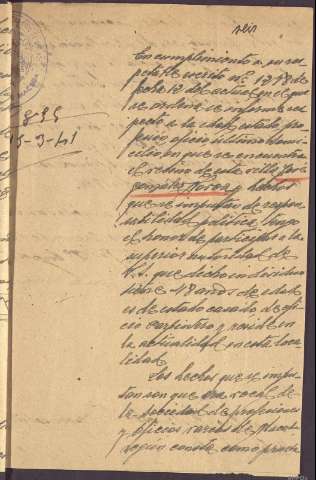 seis
En cumplimiento a su res
petable acuerdo nº 1798 de
fecha 12 del actual en el que
se ordena se informe res
pecto a la edad, estado, pro
fesión oficio último domi
cilio en que se encuentra
el vecino de esta villa José
González y hechos
que se imputan de respon
sabilidad política, tengo
el honor de participar a la
superior autoridad de
V.S. que dicho individuo
tiene 48 años de edad
es de estado casado de ofi
cio carpintero y reside en
la actualidad en esta loca
lidad.
Los hechos que se impu
tan son que era vocal de
la sociedad de profesiones
y oficios varios de
según consta como
855
15-3-41